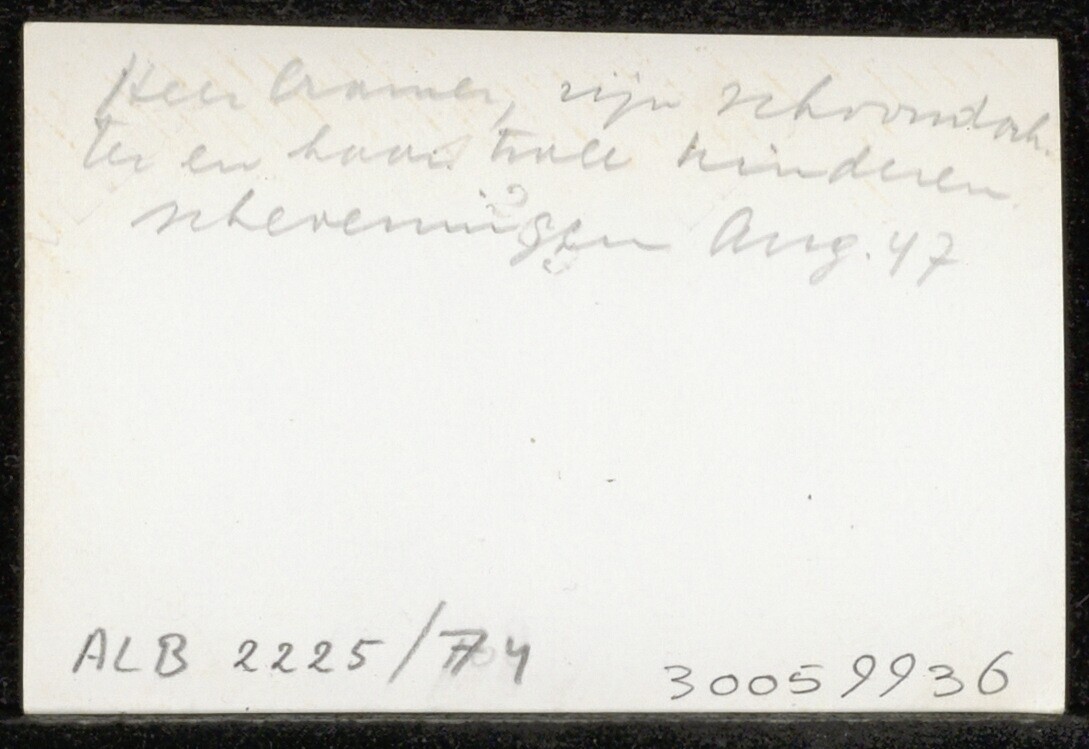 Heer Cramer, zijn schoondoch.
ter en haar twee kinderen.
Scheveningen Aug. 47
ALB 2225/74
30059936